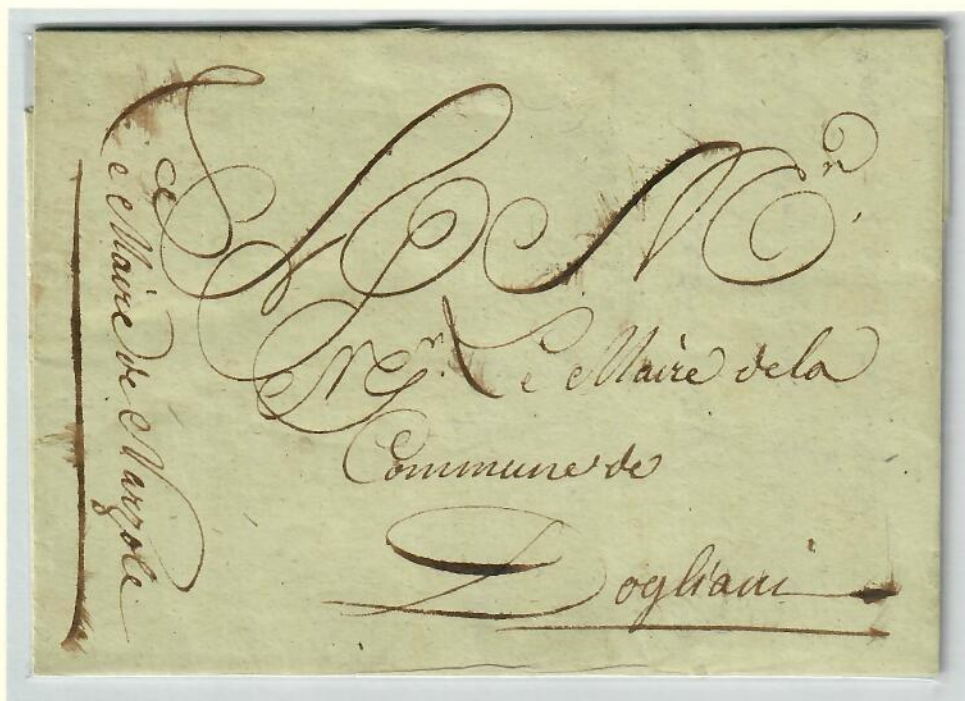 Le Maire de Narzole
Le Maire de la
Commune de
Dogliani